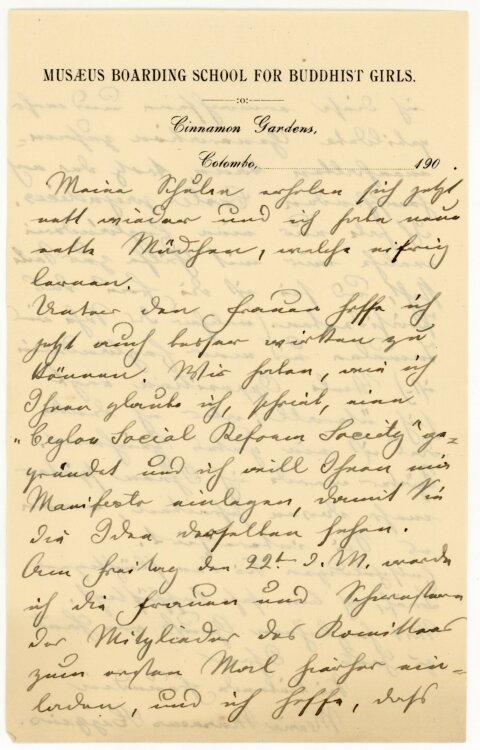 MUSÆUS BOARDING SCHOOL FOR BUDDHIST GIRLS.
:o:
Cinnamon Gardens,
Colombo, 190 .
Meine Schulen erholen sich jetzt
nett wieder und ich habe neue
nette Mädchen, welche eifrig
lernen.
Unter den Frauen hoffe ich
jetzt auch besser wirken zu
können. Wir haben, wie ich
Ihnen glaube ich, schrieb, eine
„Ceylon Social Reform Society" ge=
gründet und ich will Ihnen ein
Manifesto einlegen, damit Sie
die Idee derselben sehen.
Am Freitag den 22t. d. M. werde
ich die Frauen und Schwestern
der Mitglieder des Komittees
zum ersten Mal hierher ein=
laden, und ich hoffe, daß